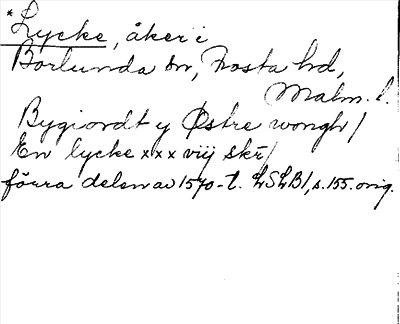 *Lycke, åker i
Borlunda sn, Frosta hd,
Malm. l.
Bygiordt y Østre wongh/
En lycke xxx viij skr̄/
förra delen av 1570-t. LSLB1, s. 155. orig.